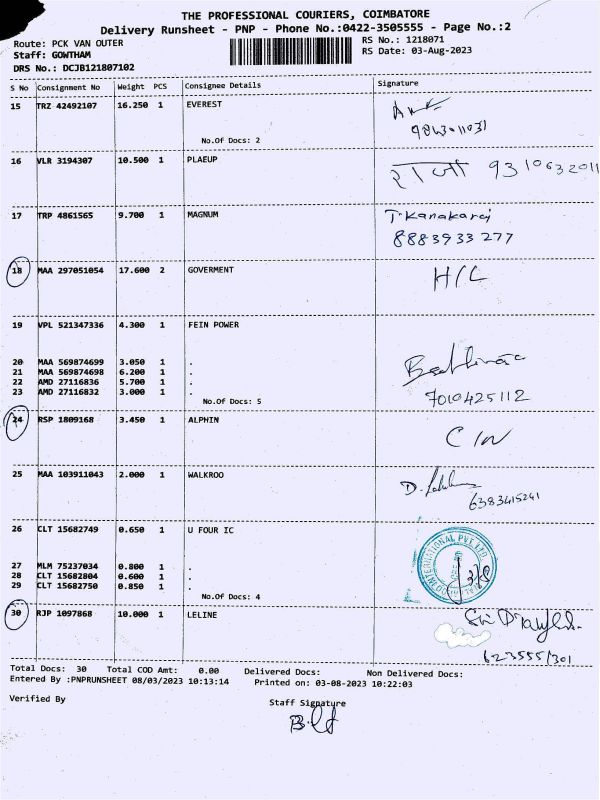 THE PROFESSIONAL COURIERS, COIMBATORE
Delivery Runsheet - PNP - Phone No.:0422-3505555 - Page No.:2
Route: PCK VAN OUTER RS No.: 1218071
Staff: GOWTHAM RS Date: 03-Aug-2023
DRS No.: DCJB121807102
S No Consignment No Weight PCS Consignee Details Signature
15 TRZ 42492107 16.250 1 EVEREST
No.Of Docs: 2
16 VLR 3194307 10.500 1 PLAEUP राजा 9310632011
17 TRP 4861565 9.700 1 MAGNUM T. Kanakaraj
8883933277
18 MAA 297051054 17.600 2 GOVERMENT H/L
19 VPL 521347336 4.300 1 FEIN POWER
20 MAA 569874699 3.050 1 .
21 MAA 569874698 6.200 1 .
22 AMD 27116836 5.700 1 .
23 AMD 27116832 3.000 1 .
No.Of Docs: 5 7010425112
24 RSP 1809168 3.450 1 ALPHIN C/N
25 MAA 103911043 2.000 1 WALKROO
6383415241
26 CLT 15682749 0.650 1 U FOUR IC
27 MLM 75237034 0.800 1 .
28 CLT 15682804 0.600 1 .
29 CLT 15682750 0.850 1 .
No.Of Docs: 4
INTERNATIONAL PVT. LTD.
30 RJP 1097868 10.000 1 LELINE
Total Docs: 30 Total COD Amt: 0.00 Delivered Docs: Non Delivered Docs:
Entered By :PNPRUNSHEET 08/03/2023 10:13:14 Printed on: 03-08-2023 10:22:03
Verified By Staff Signature